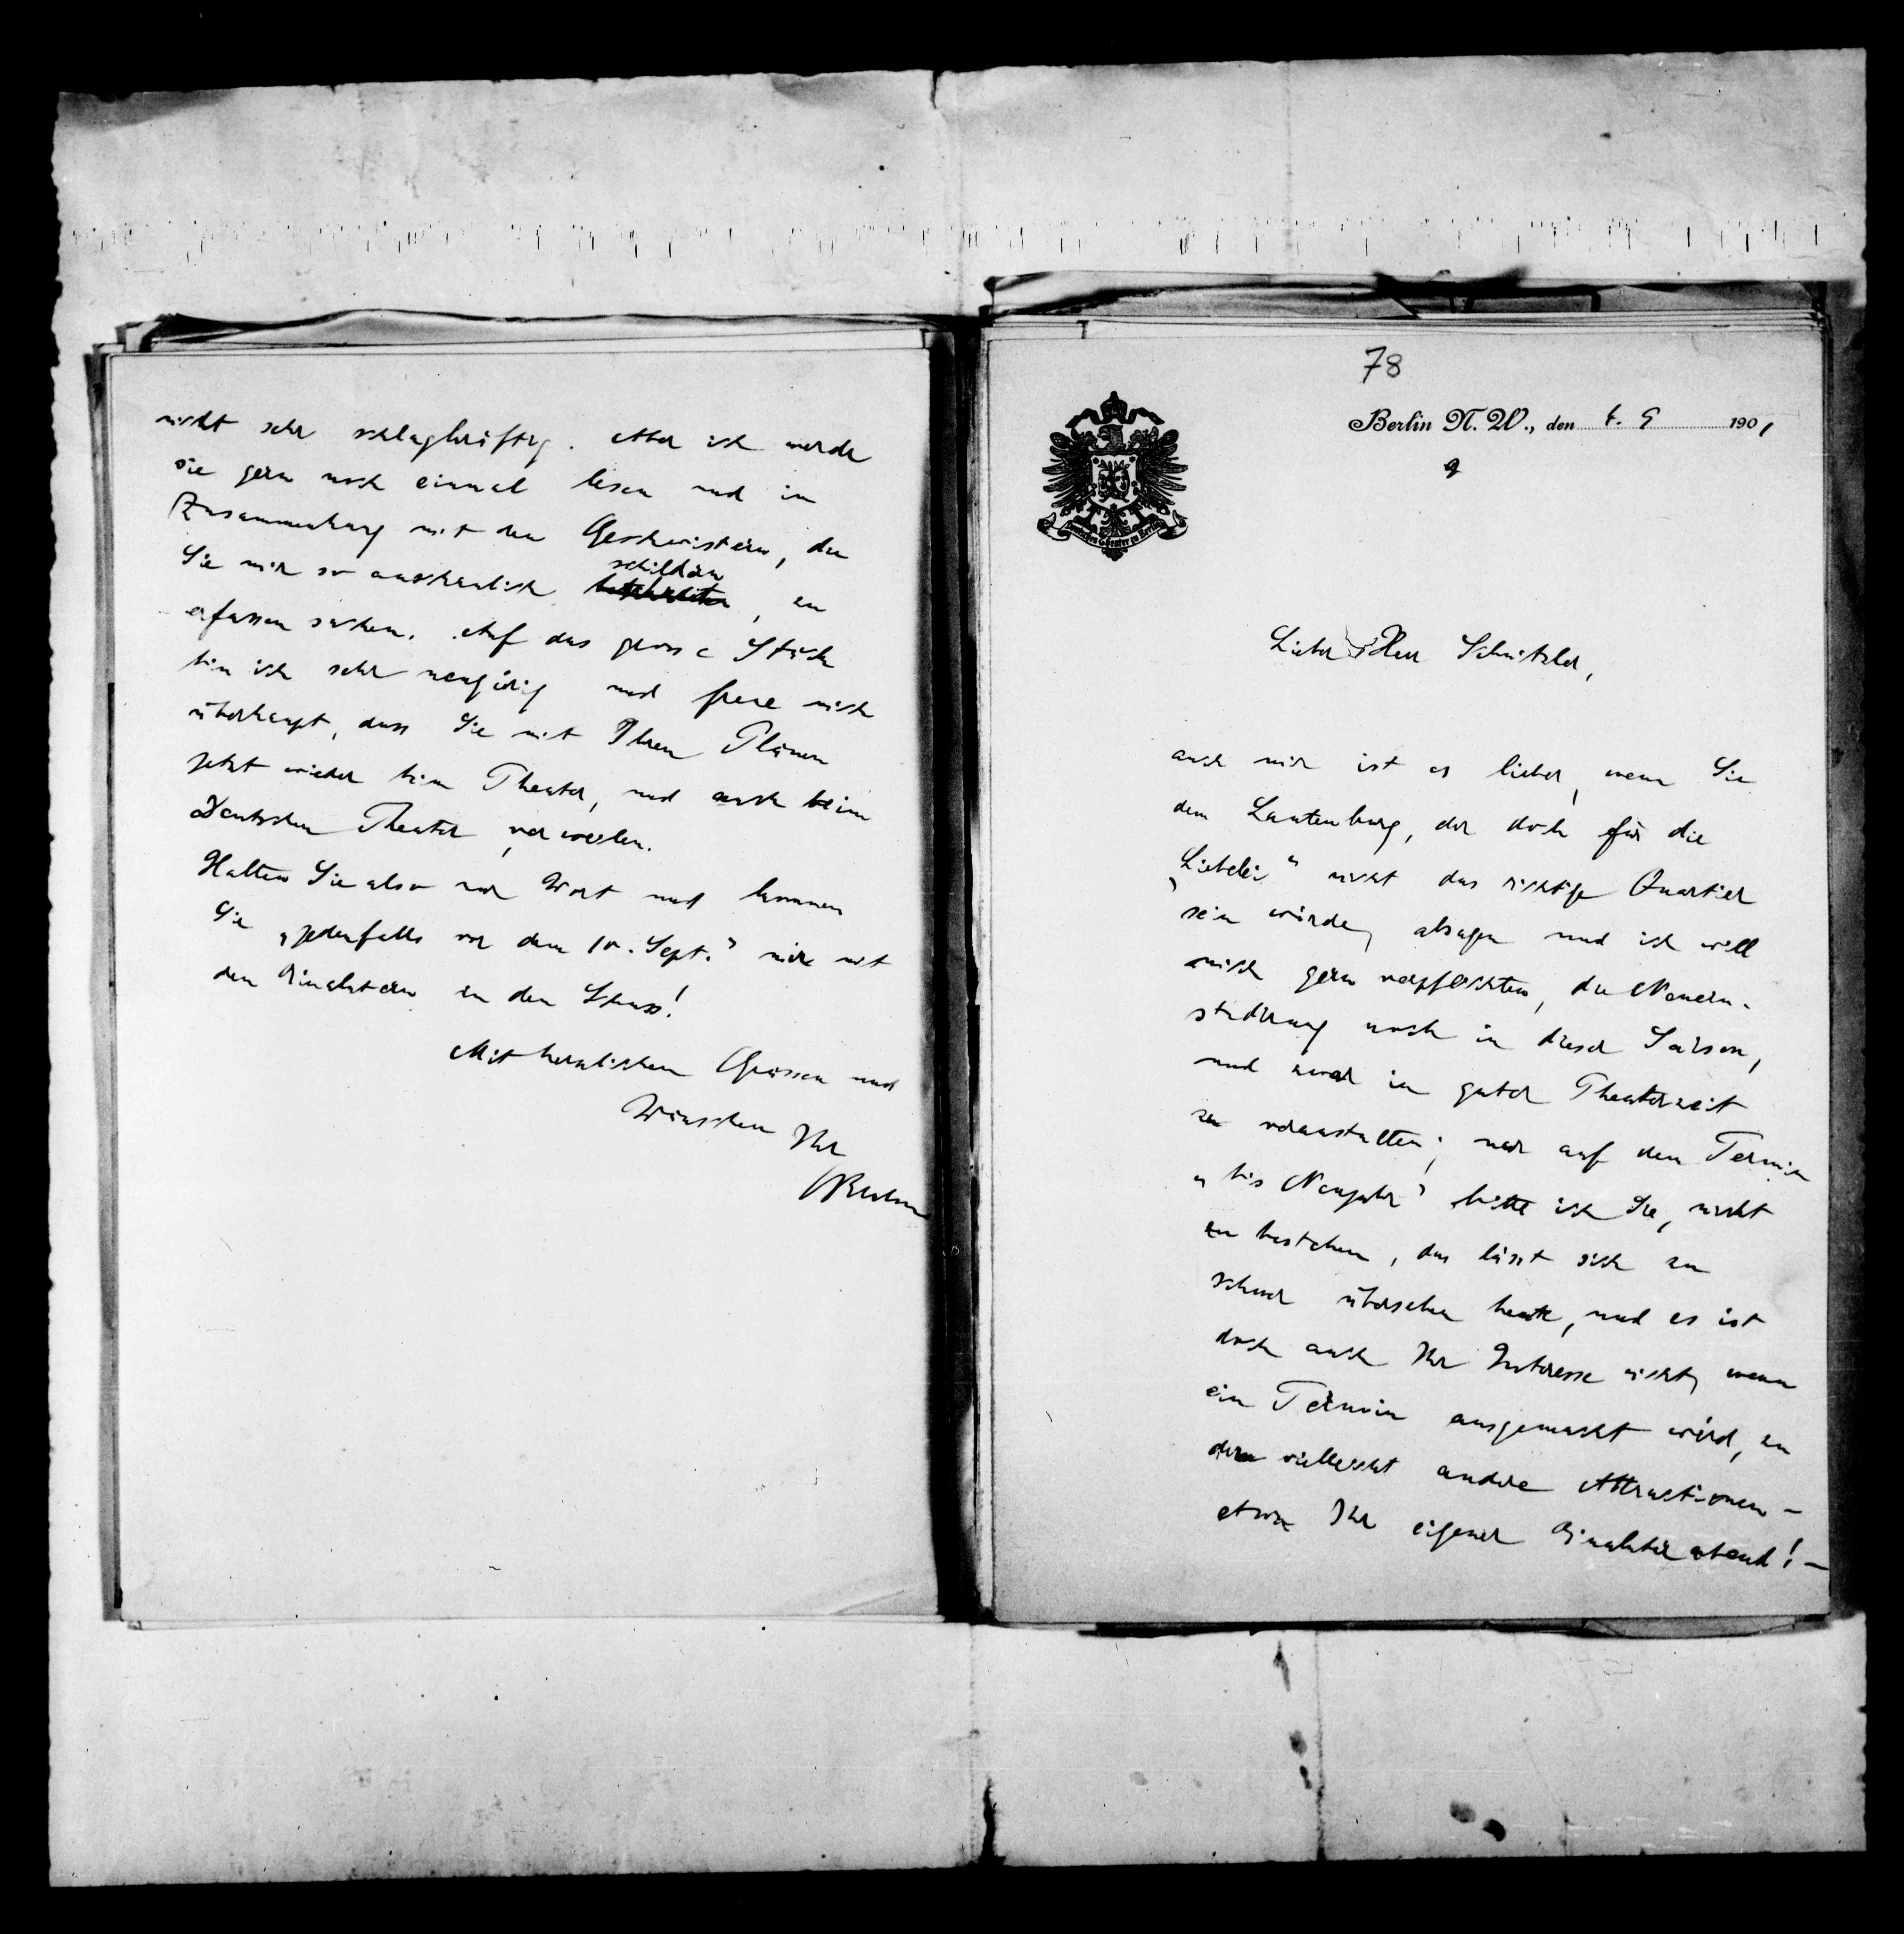 nicht sehr schlagkräftig. Aber ich werde
sie gern noch einmal lesen und im
Zusammenhang mit den Geschwistern, die
Sie mir so anschaulich schildern, zu
erfassen suchen. Auf das grosse Stück
bin ich sehr neugierig und freue mich
überhaupt, dass Sie mit Ihren Plänen
jetzt wieder beim Theater, und auch beim
Deutschen Theater, verweilen.
Halten Sie also nur Wort und kommen
Sie „jedenfalls vor dem 10. Sept." mir mit
den Einaktern zu den Schuss!
Mit herzlichen Grüssen und
Wünschen Ihr
Brahm
78
Berlin N. W., den 4. 9 1901
9
Deutsches Theater zu Berlin
Lieber Herr Schnitzler,
auch mir ist es lieber, wenn Sie
dem Lautenburg, der doch für die
„Liebelei" nicht das richtige Quartier
sein würde, absagen und ich will
mich gern verpflichten, die Neuein-
studirung noch in dieser Saison,
und zwar in guter Theaterzeit
zu veranstalten; nur auf den Termin
„bis Neujahr" bitte ich Sie, nicht
zu bestehen, das lässt sich zu
schwer übersehen heute, und es ist
doch auch Ihr Interesse nicht, wenn
ein Termin ausgemacht wird, zu
dem vielleicht andere Attractionen –
etwa Ihr eigener Einakterabend! –